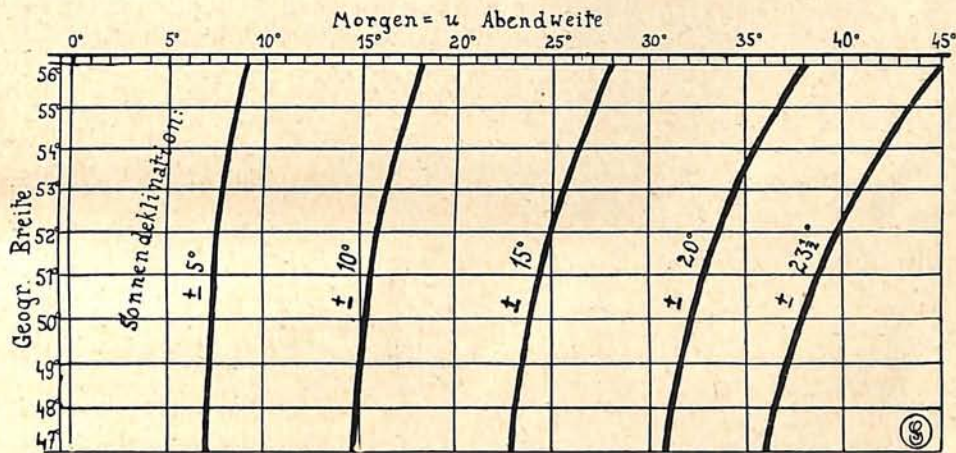 Morgen= u Abendweite
0° 5° 10° 15° 20° 25° 30° 35° 40° 45°
Geogr. Breite
56°
55°
54°
53°
52°
51°
50°
49°
48°
47°
Sonnendeklination:
± 5°
± 10°
± 15°
± 20°
± 23½°